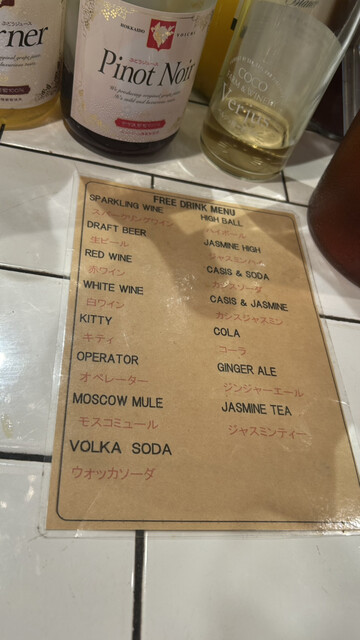 rner
HOKKAIDO
ぶどうジュース
Pinot Noir
COCO
FREE DRINK MENU
SPARKLING WINE
スパークリングワイン
DRAFT BEER
生ビール
RED WINE
赤ワイン
WHITE WINE
白ワイン
KITTY
キティ
OPERATOR
オペレーター
MOSCOW MULE
モスコミュール
VOLKA SODA
ウオッカソーダ
HIGH BALL
ハイボール
JASMINE HIGH
ジャスミンハイ
CASIS & SODA
カシスソーダ
CASIS & JASMINE
カシスジャスミン
COLA
コーラ
GINGER ALE
ジンジャーエール
JASMINE TEA
ジャスミンティー